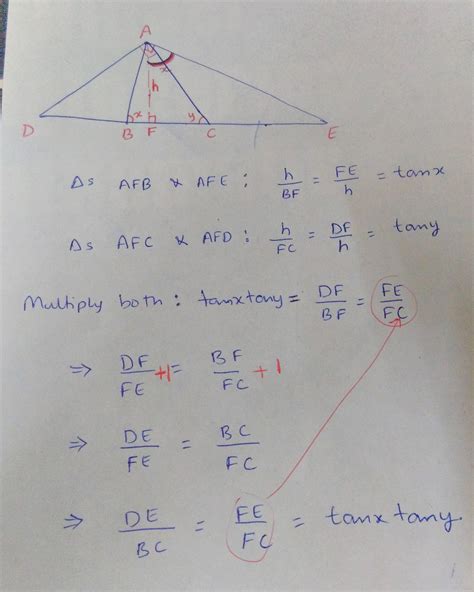 A
y
x
h
D
x
y
B F C E
Δs AFB & AFE : h/BF = FE/h = tanx
Δs AFC & AFD : h/FC = DF/h = tany
Multiply both : tanxtany = DF/BF = FE/FC
⇒ DF/FE +1 = BF/FC + 1
⇒ DE/FE = BC/FC
⇒ DE/BC = FE/FC = tanxtany.